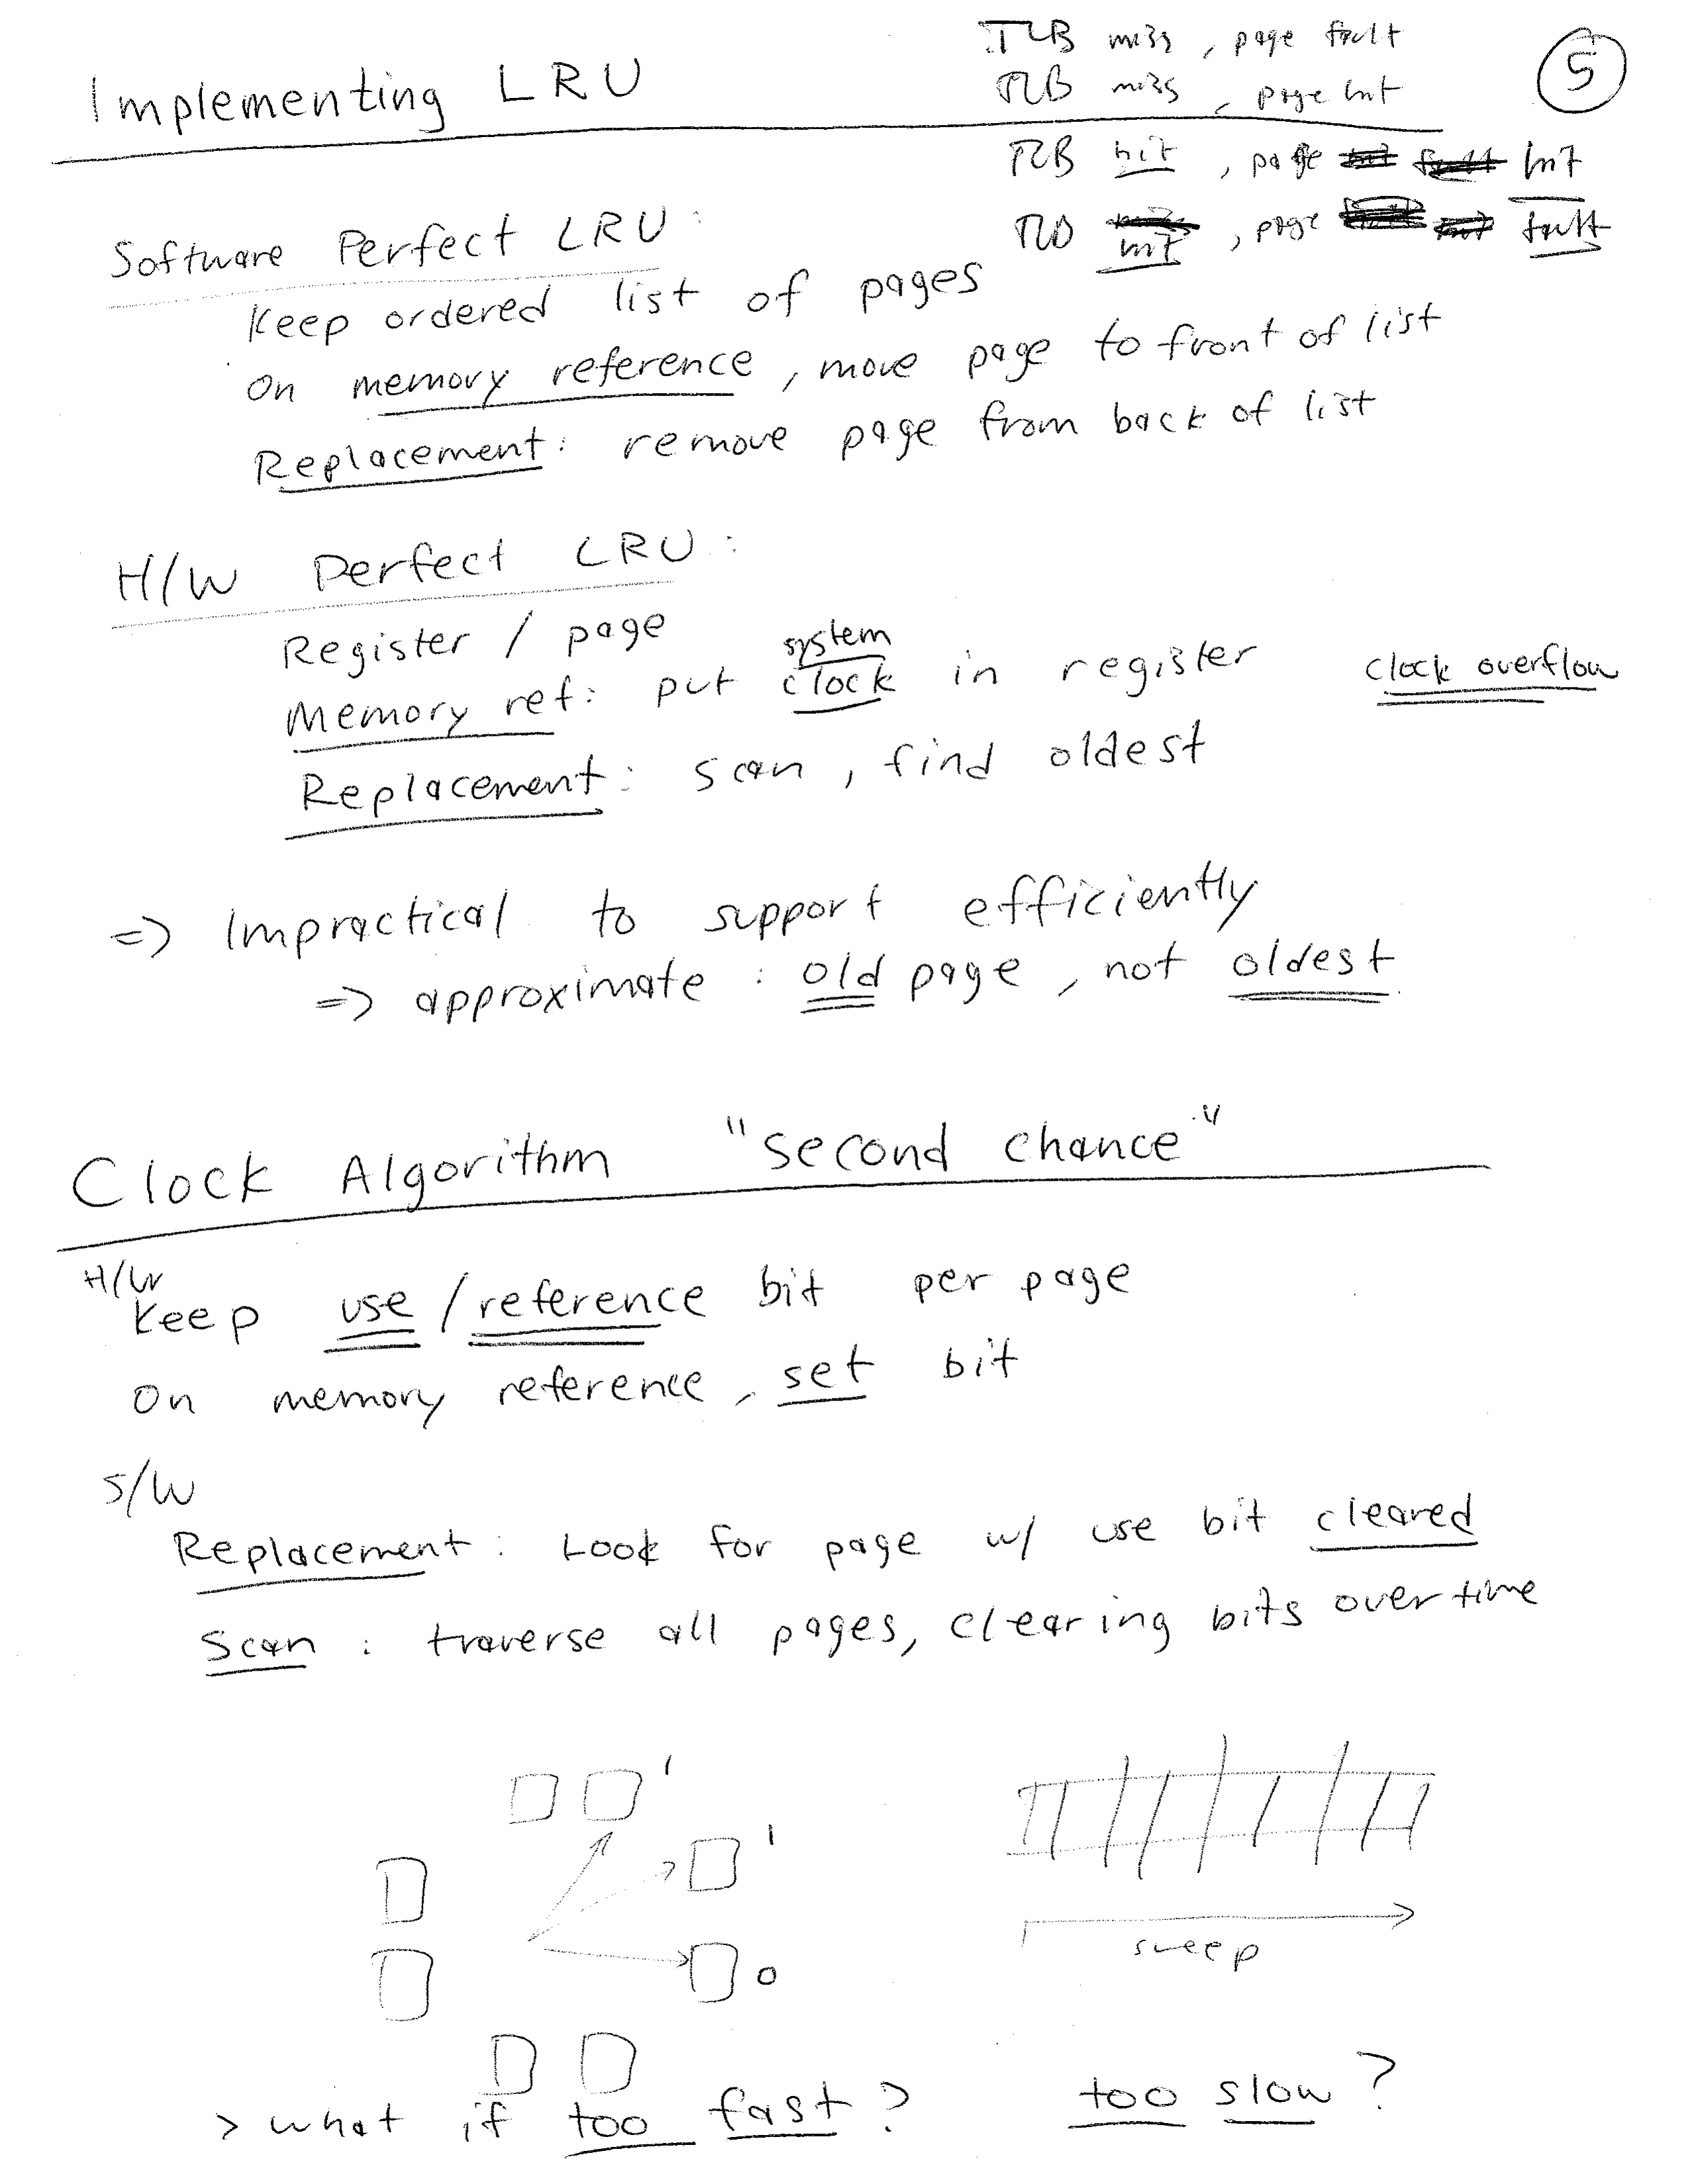 Implementing LRU
TLB miss, page fault
TLB miss, page hit
TLB hit, page hit
TLB hit, page fault
5
Software Perfect LRU:
Keep ordered list of pages
On memory reference, move page to front of list
Replacement: remove page from back of list
H/W Perfect LRU:
Register / page
Memory ref: put system clock in register
clock overflow
Replacement: scan, find oldest
=> Impractical to support efficiently
=> approximate: old page, not oldest
Clock Algorithm "second chance"
H/W
Keep use/reference bit per page
On memory reference, set bit
S/W
Replacement: Look for page w/ use bit cleared
Scan: traverse all pages, clearing bits over time
1
1
0
sweep
> what if too fast? too slow?